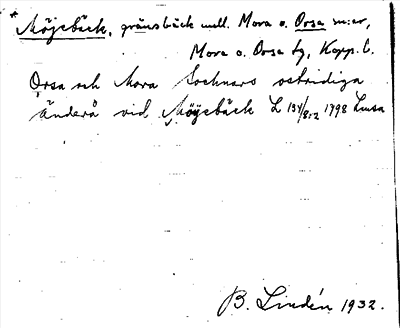 * Möjebäck, gränsbäck mell. Mora o. Orsa sn:ar,
Mora o. Orsa tg, Kopp. l.
Orsa och Mora Socknars ostridiga
änderå vid Möÿebäck L 134/8:2 1798 Lmsa
B. Lindén 1932.